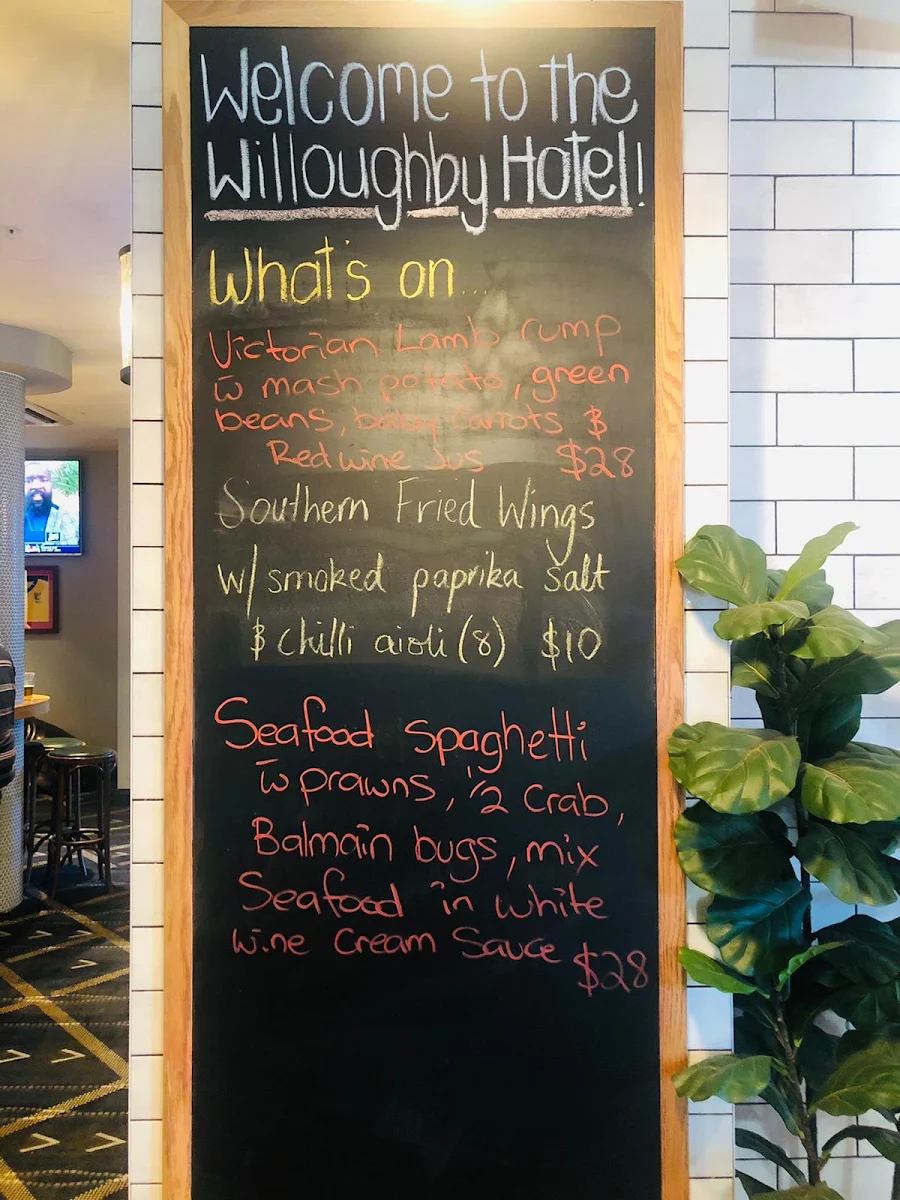 Welcome to the
Willoughby Hotel!
What's on...
Victorian Lamb rump
w̄ mash potato, green
beans, baby carrots &
Red wine Jus $28
Southern Fried Wings
w/ smoked paprika salt
& chilli aioli (8) $10
Seafood Spaghetti
w̄ prawns, 1/2 Crab,
Balmain bugs, mix
Seafood in white
wine Cream Sauce $28